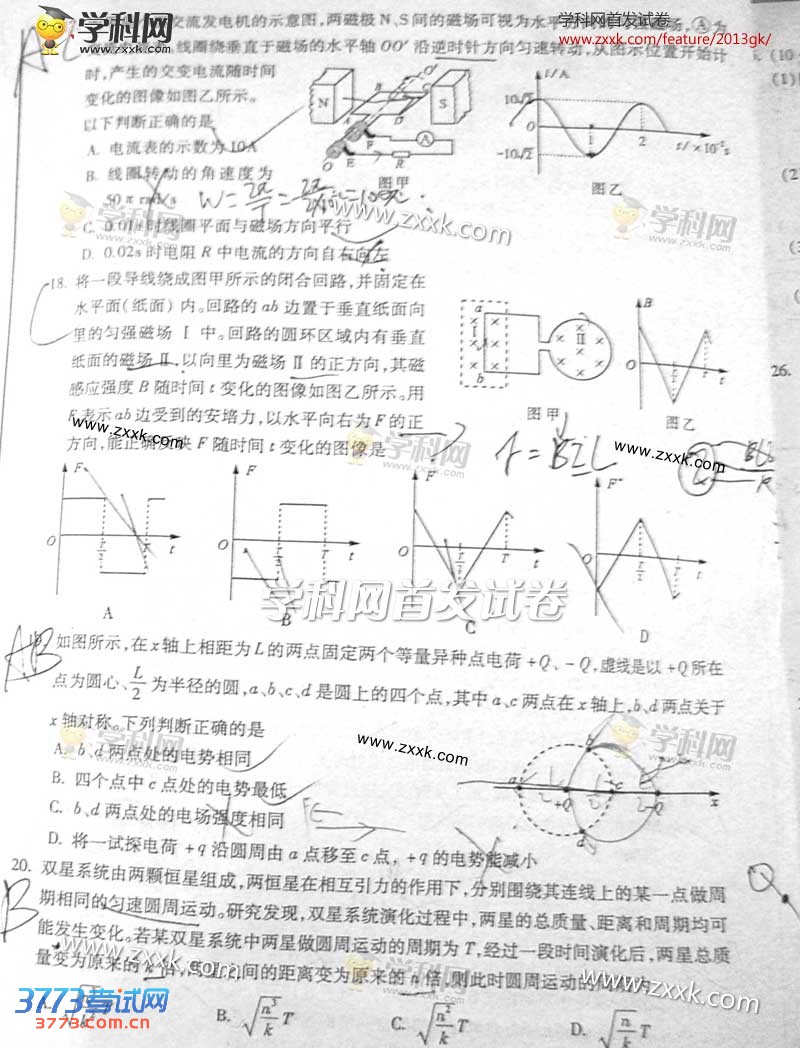 交流发电机的示意图，两磁极N、S间的磁场可视为水平
学科网首发试卷
www.zxxk.com/feature/2013gk/
线圈绕垂直于磁场的水平轴OO′沿逆时针方向匀速转动，从图示位置开始计
时，产生的交变电流随时间
变化的图像如图乙所示。
以下判断正确的是
A. 电流表的示数为10A
B. 线圈转动的角速度为
50π rad/s
C. 0.01s时线圈平面与磁场方向平行
D. 0.02s时电阻R中电流的方向自右向左
N S A E F R O
图甲
i/A
10√2
O 1 2 t/×10⁻²s
-10√2
图乙
18. 将一段导线绕成图甲所示的闭合回路，并固定在
水平面（纸面）内。回路的ab边置于垂直纸面向
里的匀强磁场Ⅰ中。回路的圆环区域内有垂直
纸面的磁场Ⅱ，以向里为磁场Ⅱ的正方向，其磁
感应强度B随时间t变化的图像如图乙所示。用
F表示ab边受到的安培力，以水平向右为F的正
方向，能正确反映F随时间t变化的图像是
a Ⅰ b Ⅱ
图甲
B O T/2 T t
图乙
26.
F O T/2 T t
A
F O T/2 T t
B
F O T/2 T t
C
F O T/2 T t
D
如图所示，在x轴上相距为L的两点固定两个等量异种点电荷+Q、-Q，虚线是以+Q所在
点为圆心、L/2为半径的圆，a、b、c、d是圆上的四个点，其中a、c两点在x轴上，b、d两点关于
x轴对称。下列判断正确的是
A. b、d两点处的电势相同
B. 四个点中c点处的电势最低
C. b、d两点处的电场强度相同
D. 将一试探电荷+q沿圆周由a点移至c点，+q的电势能减小
a b c d +Q -Q x
20. 双星系统由两颗恒星组成，两恒星在相互引力的作用下，分别围绕其连线上的某一点做周
期相同的匀速圆周运动。研究发现，双星系统演化过程中，两星的总质量、距离和周期均可
能发生变化。若某双星系统中两星做圆周运动的周期为T，经过一段时间演化后，两星总质
量变为原来的k倍，两星之间的距离变为原来的n倍，则此时圆周运动的周期为
B. √(n³/k) T
C. √(n²/k) T
D. √(n/k) T
3773考试网
3773.com.cn
学科网
www.zxxk.com